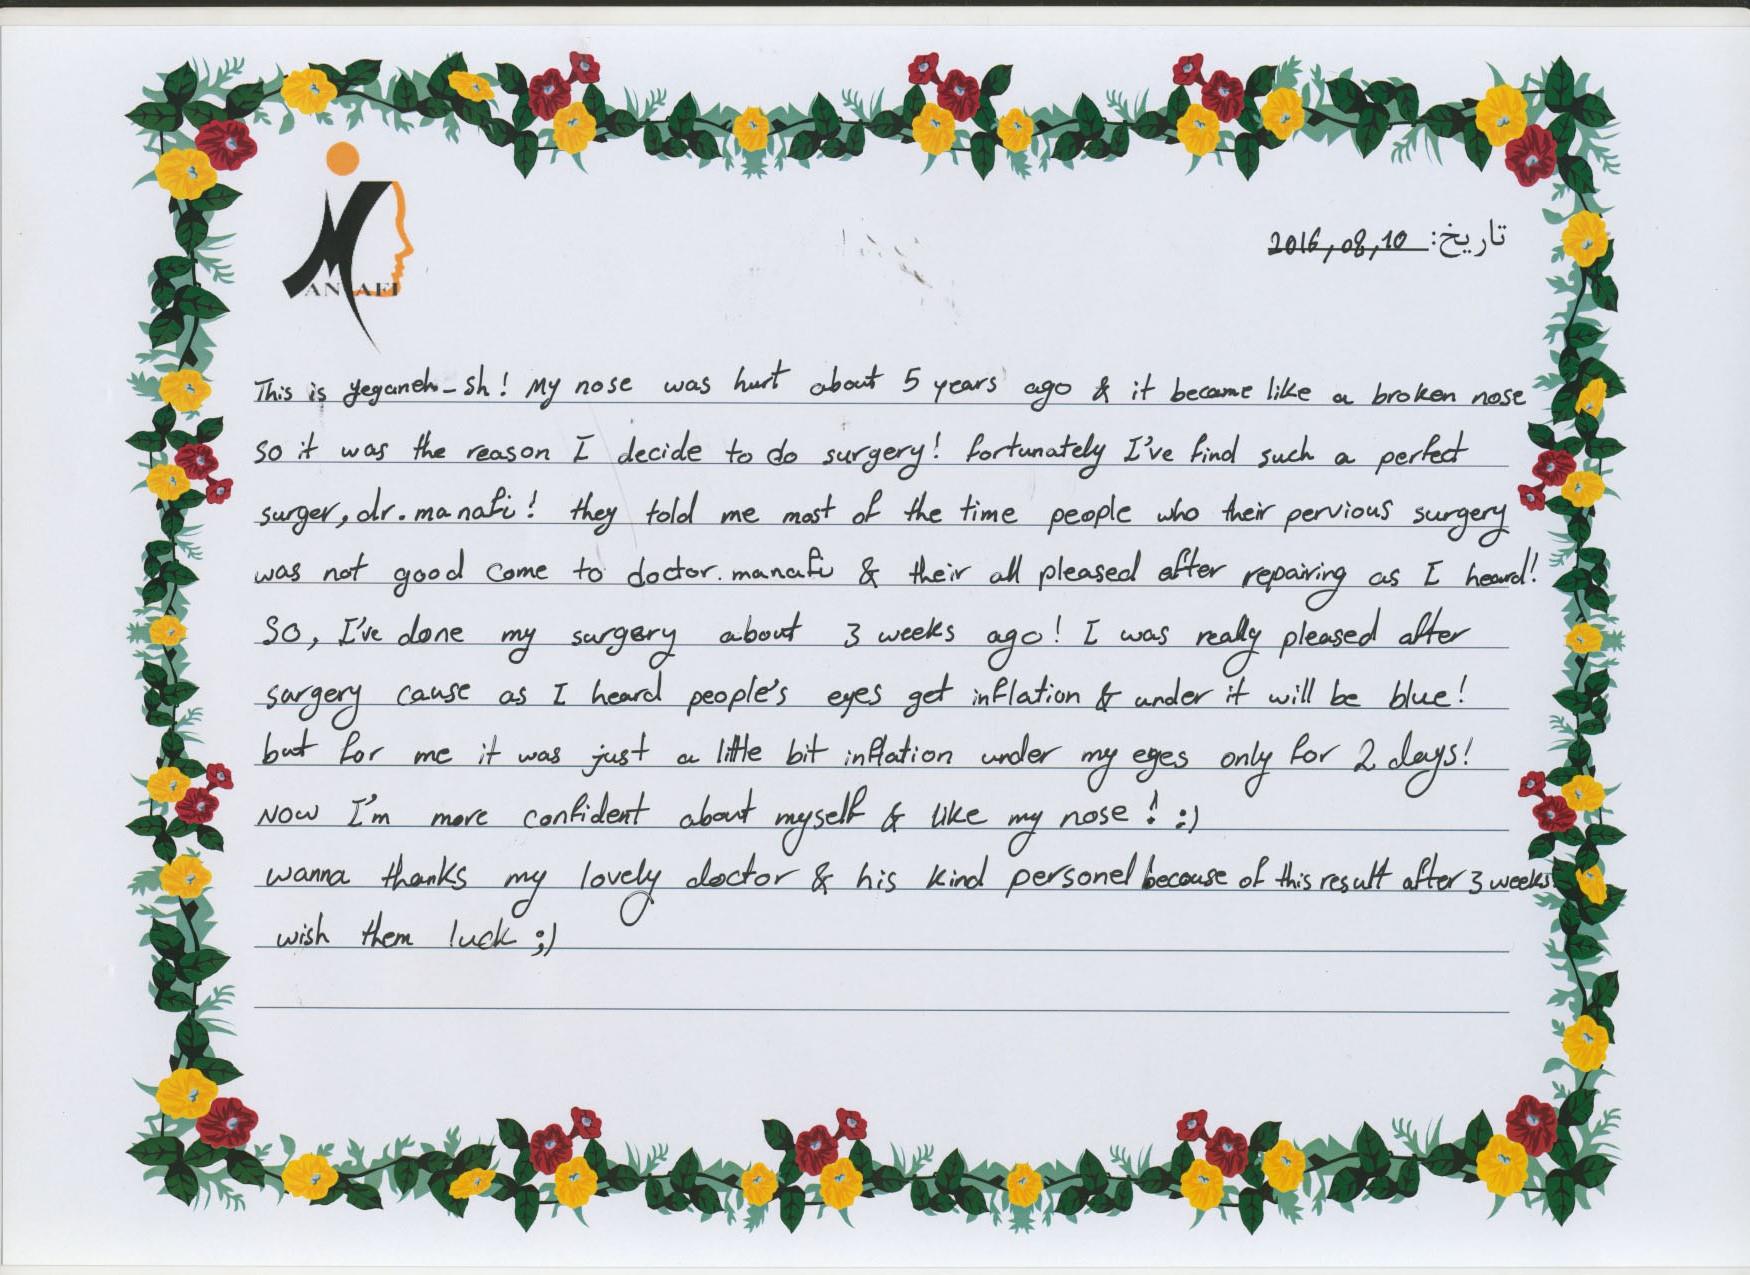 MANAFI
تاریخ: 2016,08,10
This is yeganeh_sh! My nose was hurt about 5 years ago & it became like a broken nose
so it was the reason I decide to do surgery! fortunately I've find such a perfect
surger, dr. manafi! they told me most of the time people who their pervious surgery
was not good come to doctor. manafi & their all pleased after repairing as I heard!
SO, I've done my surgery about 3 weeks ago! I was really pleased after
surgery cause as I heard people's eyes get inflation & under it will be blue!
but for me it was just a little bit inflation under my eyes only for 2 days!
NOW I'm more confident about myself & like my nose! :)
wanna thanks my lovely doctor & his kind personel because of this result after 3 weeks
wish them luck ;)